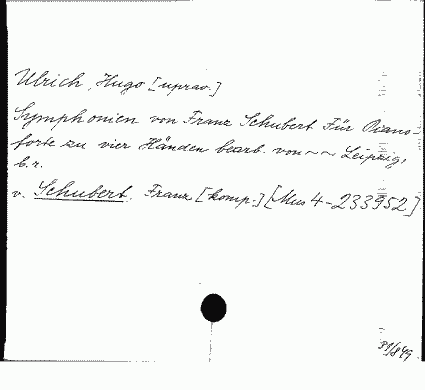 Ulrich, Hugo [uprav.]
Symphonien von Franz Schubert Für Piano-
forte zu vier Händen bearb. von ~ ~ Leipzig,
b.r.
v. Schubert, Franz [komp.] [Mus 4-233952]